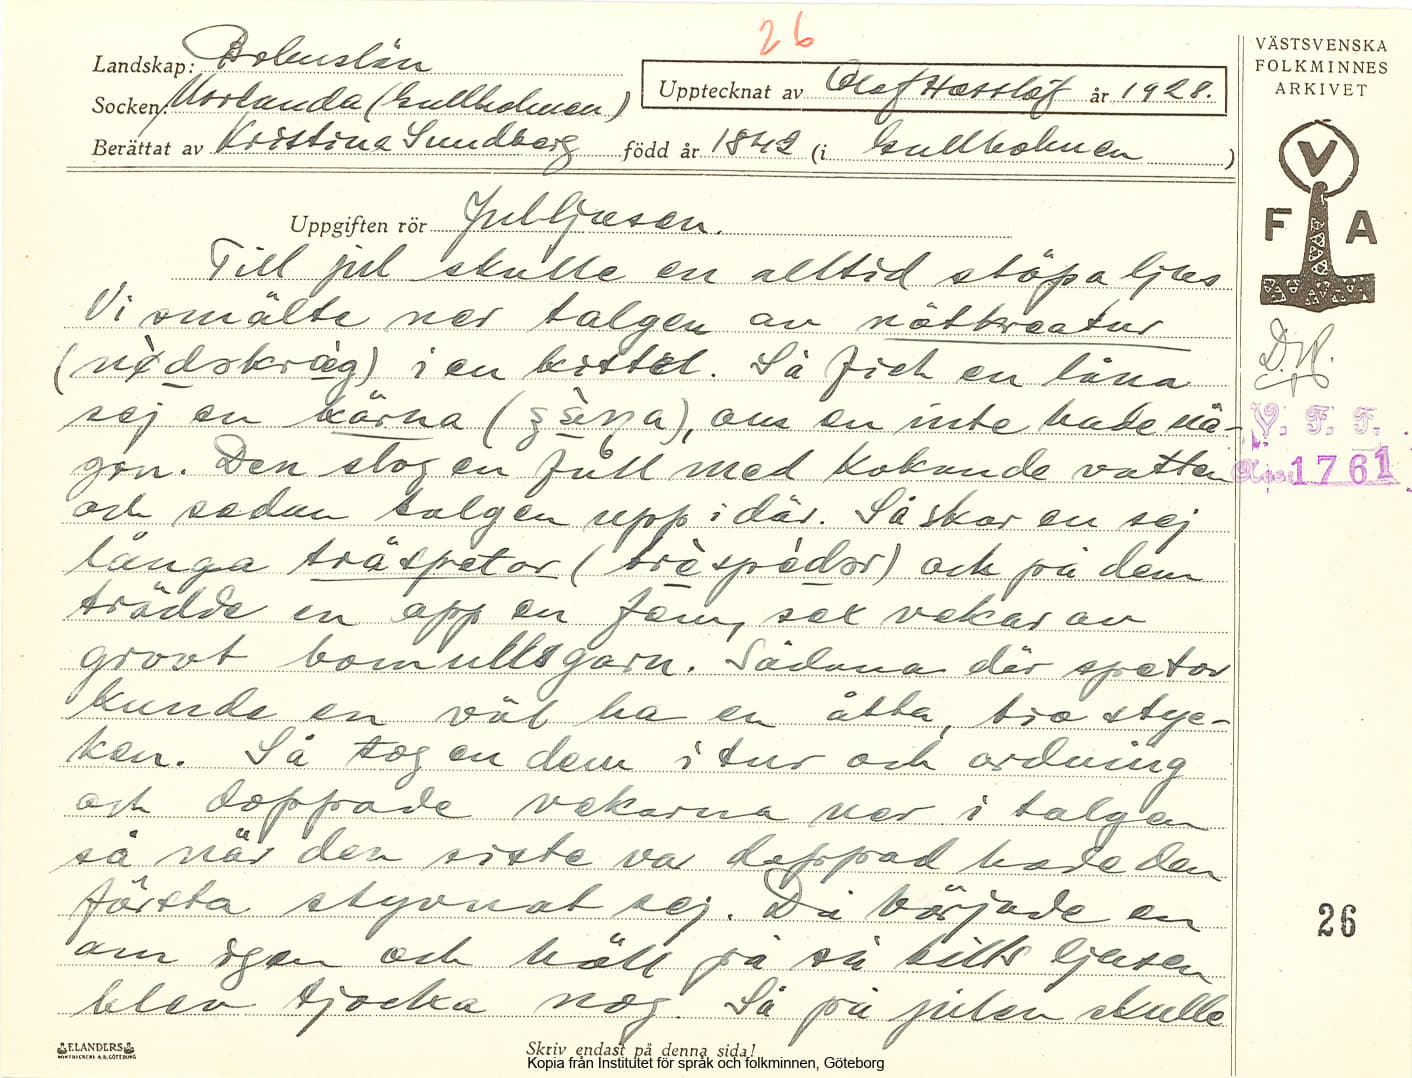 26
Landskap: Bohuslän
Socken: Morlanda (Gullholmen)
Upptecknat av Olof Hasslöf år 1928.
Berättat av Kristina Sundberg född år 1842 (i Gullholmen)
VÄSTSVENSKA
FOLKMINNES
ARKIVET
V
F A
V. F. F.
Acc: 1761
Uppgiften rör Julljusen.
Till jul skulle en alltid stöpa ljus
Vi smälte ner talgen av nötkreatur
(nödskräg) i en kittel. Så fick en låna
sej en kärna, om en inte hade nå-
gon. Den slog en full med kokande vatten
och sedan talgen upp i där. Så skar en sej
långa träspetor (träspedor) och på dem
trädde en opp en fem, sex vekar av
grovt bomullsgarn. Sådana där spetor
kunde en väl ha en åtta, tio styc-
ken. Så tog en dem i tur och ordning
och doppade vekarna ner i talgen
så när den siste var doppad hade den
första styvnat sej. Då började en
om igen och höll på så tills ljusen
blev tjocka nog. Så på julen skulle
26
ELANDERS
BOKTRYCKERI A.B. GÖTEBORG
Skriv endast på denna sida!
Kopia från Institutet för språk och folkminnen, Göteborg